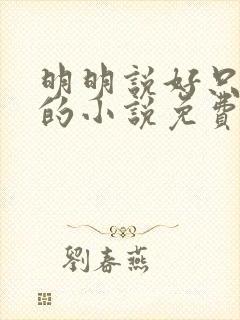 明明説好只
的小説免費
劉春燕